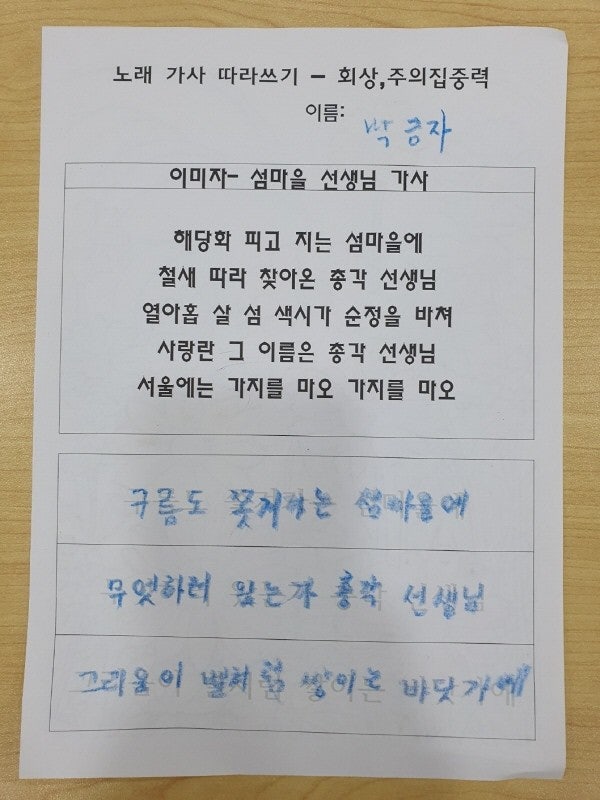 노래 가사 따라쓰기 - 회상,주의집중력
이름:
박 긍자
이미자- 섬마을 선생님 가사
해당화 피고 지는 섬마을에
철새 따라 찾아온 총각 선생님
열아홉 살 섬 색시가 순정을 바쳐
사랑란 그 이름은 총각 선생님
서울에는 가지를 마오 가지를 마오
구름도 쫓겨가는 섬마을에
무엇하러 왔는가 총각 선생님
그리움이 별처럼 쌓이는 바닷가에